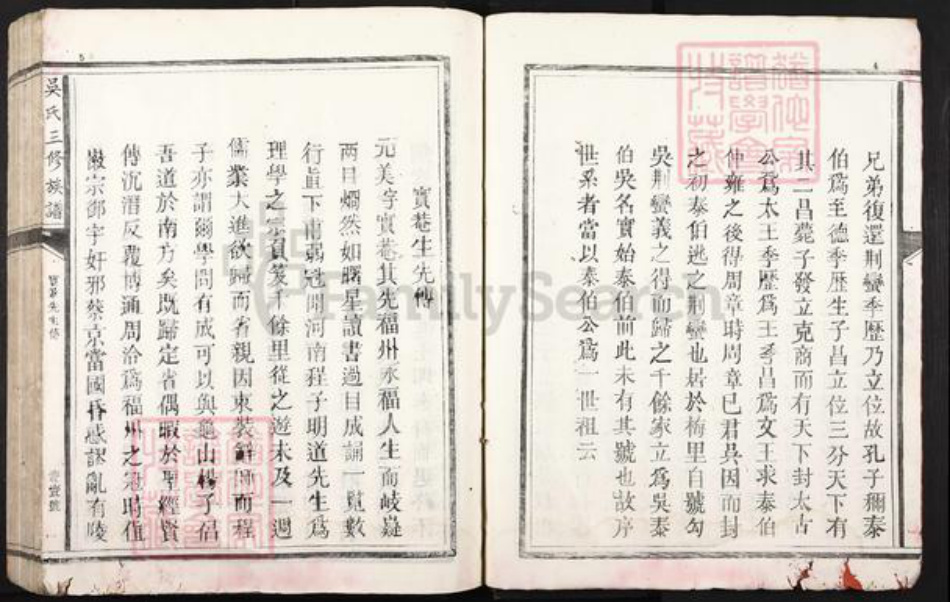 兄弟復還荆蠻季歷乃立位故孔子稱泰
伯爲至德季歷生子昌立位三分天下有
其二昌薨子發立克商而有天下封太古
公爲太王季歷爲王季昌爲文王求泰伯
仲雍之後得周章時周章已君吳因而封
之初泰伯逃之荆蠻也居於梅里自號勾
吳荆蠻義之得而歸之千餘家立爲吳泰
伯吳名實始泰伯前此未有其號也故序
世系者當以泰伯公爲一世祖云
寳菴生先傳
元美字實菴其先福州永福人生而岐嶷
兩目爛然如曙星讀書過目成誦一覽數
行直下甫弱冠聞河南程子明道先生爲
理學之宗負笈千餘里從之遊未及一週
儒業大進欲歸而省親因束裝辭師而程
子亦謂爾學問有成可以與龜山楊子倡
吾道於南方矣既歸定省偶暇於聖經賢
傳沉潛反覆博通周洽爲福州之冠時值
徽宗御宇奸邪蔡京當國惑謬亂有陵
吳氏三修族譜
實菴先生傳
壹號
4
5
FamilySearch